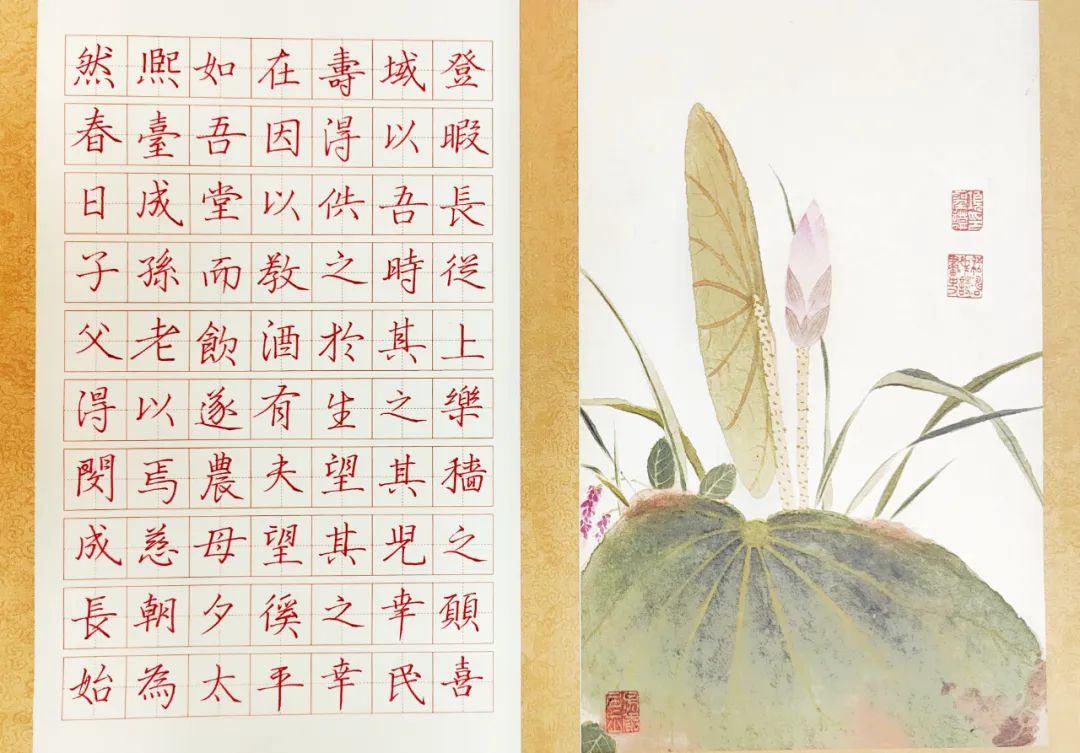 然熙如在壽域登
春臺吾因得以暇
日成堂以供吾長
子孫而教之時從
父老飲酒於其上
得以遂有生之樂
閔焉農夫望其穡
成慈母望其兒之
長朝夕徯之幸願
始為太平幸民喜